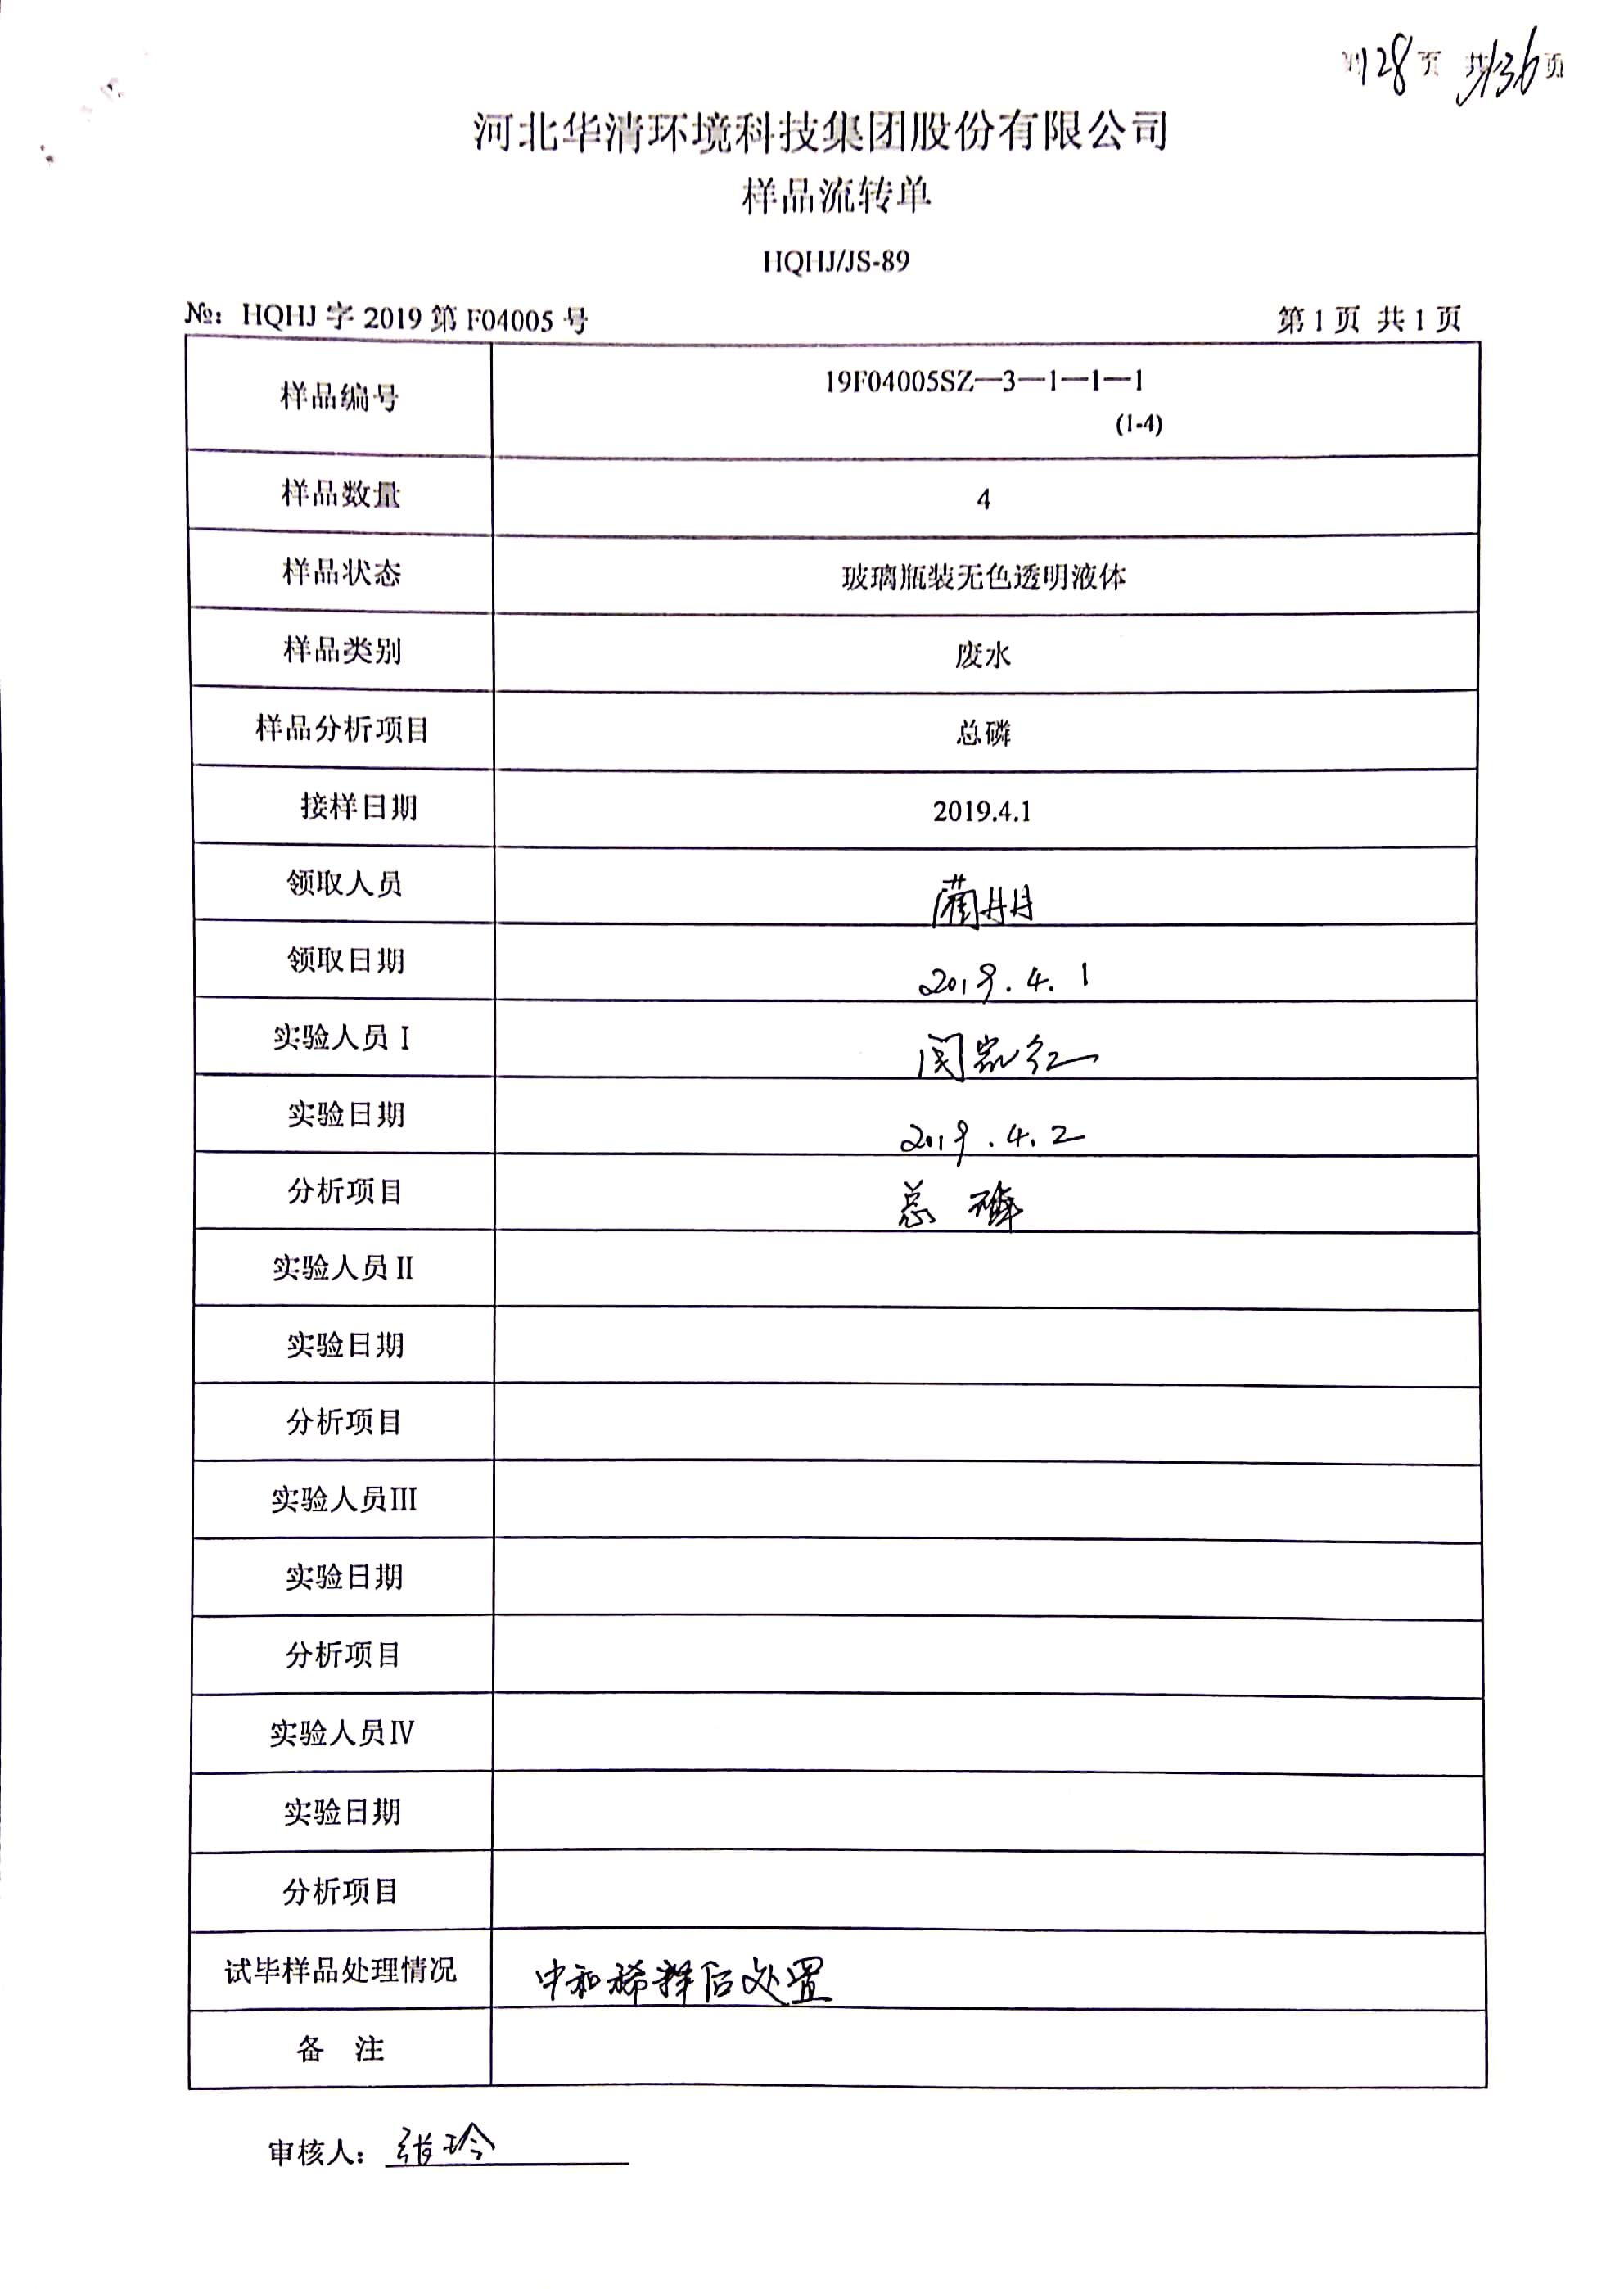 第128页 共136页
河北华清环境科技集团股份有限公司
样品流转单
HQHJ/JS-89
№：HQHJ 字 2019 第 F04005 号 第 1 页 共 1 页
样品编号 19F04005SZ—3—1—1—1
(1-4)
样品数量 4
样品状态 玻璃瓶装无色透明液体
样品类别 废水
样品分析项目 总磷
接样日期 2019.4.1
领取人员
领取日期 2019.4.1
实验人员 I
实验日期 2019.4.2
分析项目 总磷
实验人员 II
实验日期
分析项目
实验人员III
实验日期
分析项目
实验人员IV
实验日期
分析项目
试毕样品处理情况 中和稀释后处置
备 注
审核人：张玲